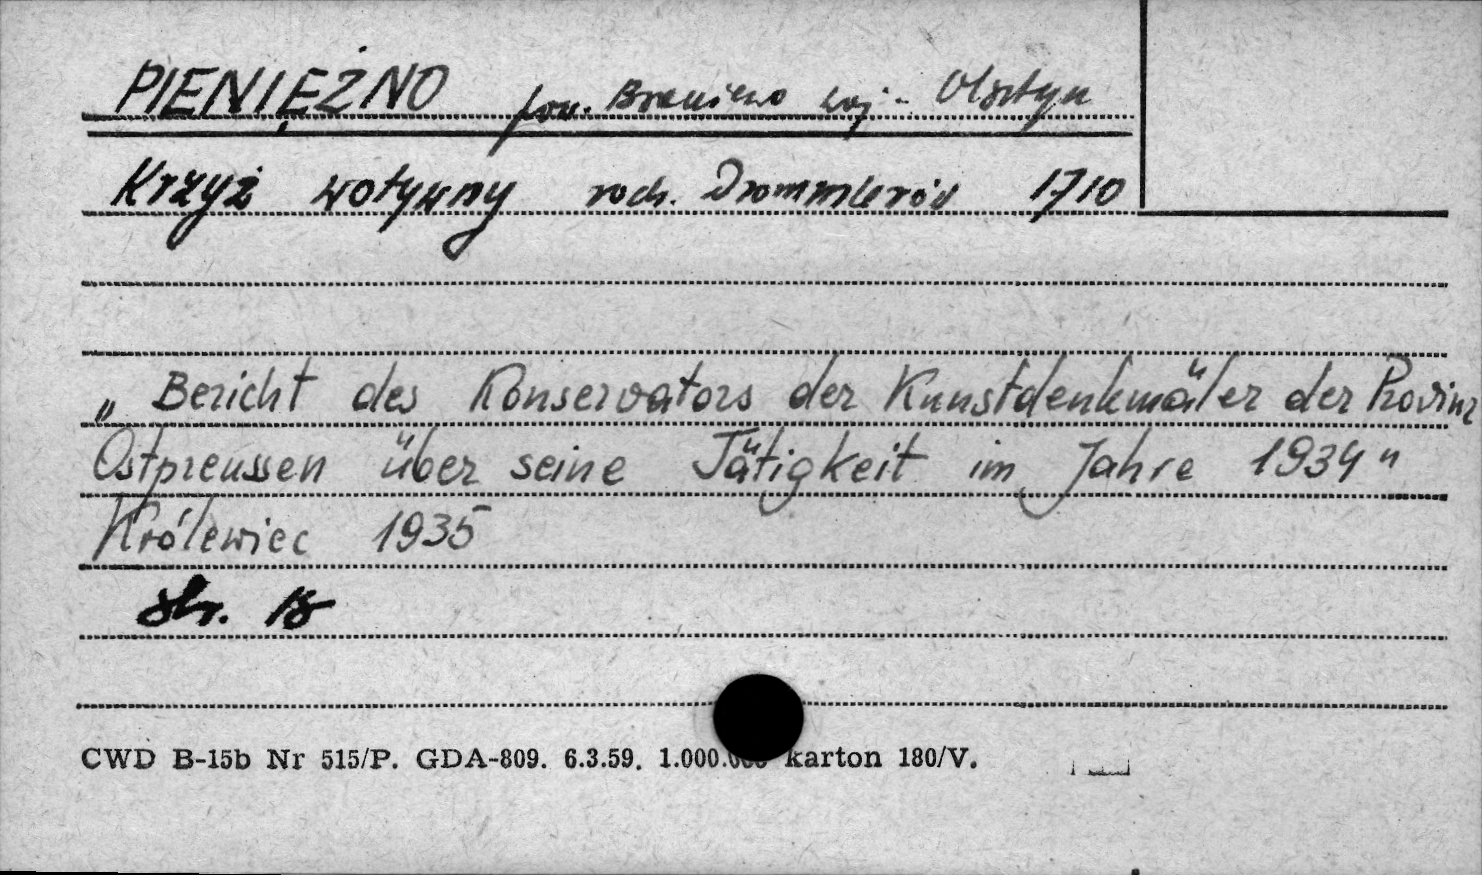 PIENIĘŻNO pow. Braniewo woj. Olsztyn
Krzyż wotywny rodz. Drommlerów 1710
„Bericht des Konservators der Kunstdenkmäler der Provinz
Ostpreussen über seine Tätigkeit im Jahre 1934"
Królewiec 1935
str.
CWD B-15b Nr 515/P. GDA-809. 6.3.59. 1.000.000 karton 180/V.